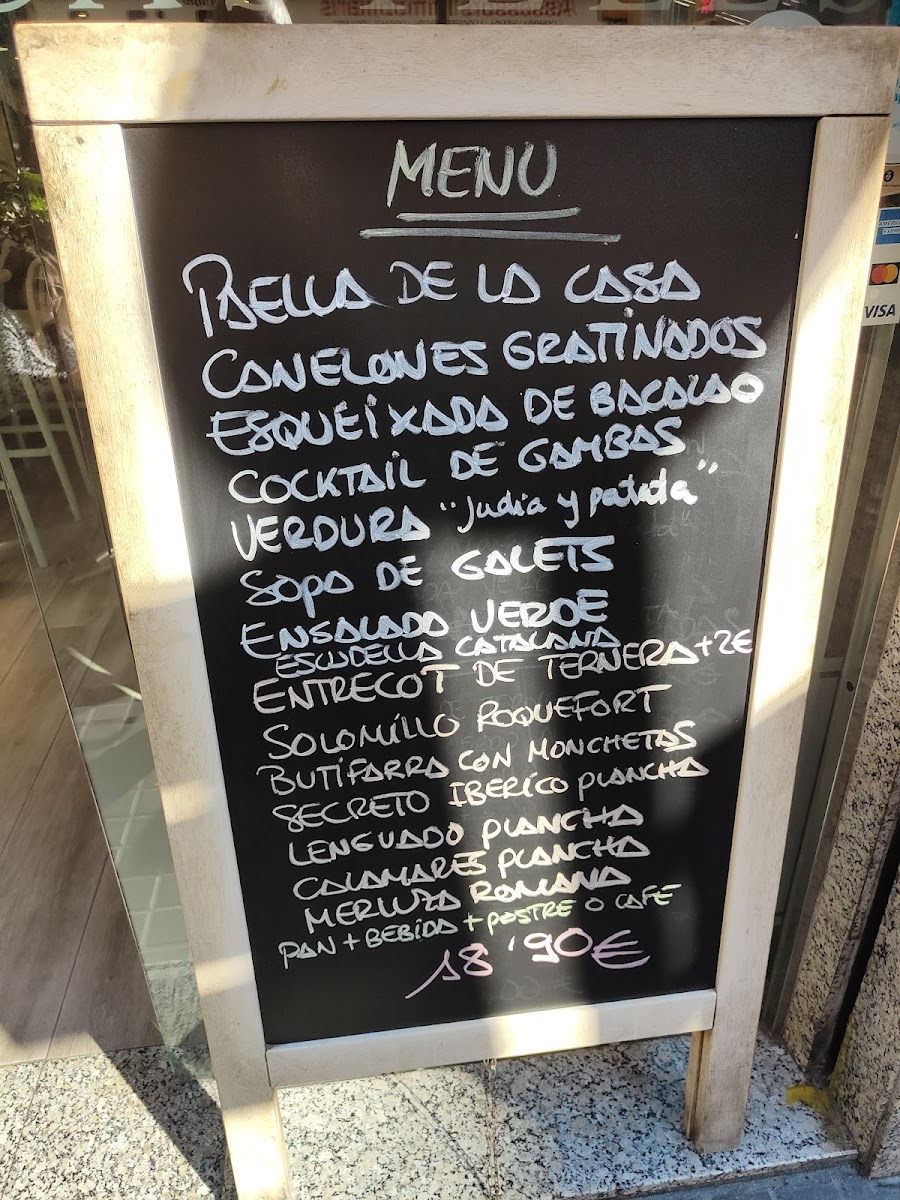 MENU
PAELLA DE LA CASA
CANELONES GRATINADOS
ESQUEIXADA DE BACALAO
COCKTAIL DE GAMBAS
VERDURA "Judia y patata"
SOPA DE GALETS
ENSALADA VERDE
ESCUDELLA CATALANA
ENTRECOT DE TERNERA +2€
SOLOMILLO ROQUEFORT
BUTIFARRA CON MONCHETAS
SECRETO IBERICO PLANCHA
LENGUADO PLANCHA
CALAMARES PLANCHA
MERLUZA ROMANA
PAN + BEBIDA + POSTRE O CAFE
18'90€
AMERICAN EXPRESS
VISA